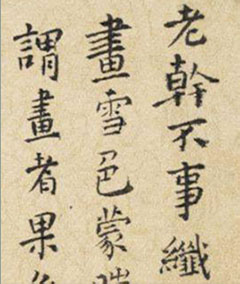 老幹不事纖
畫雪色蒙
謂畫者果